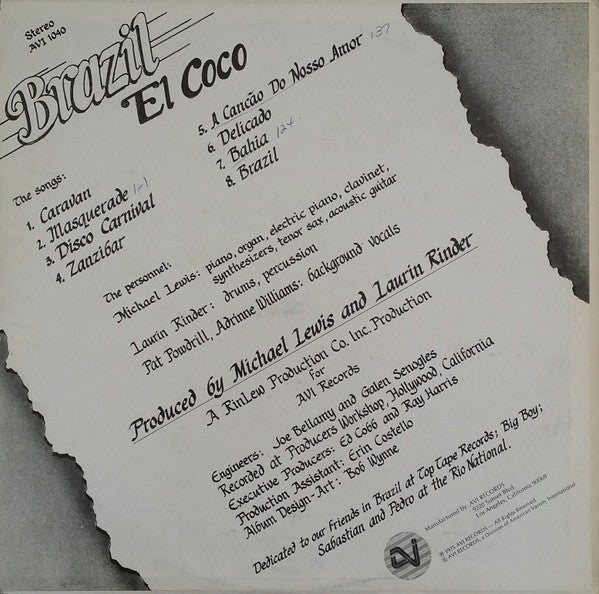 Stereo
AVI 1040
Brazil
El Coco
The songs:
1. Caravan
2. Masquerade 1-7
3. Disco Carnival
4. Zanzibar
5. A Canção Do Nosso Amor 137
6. Delicado
7. Bahia 124
8. Brazil
The personnel:
Michael Lewis: piano, organ, electric piano, clavinet,
synthesizers, tenor sax, acoustic guitar
Laurin Rinder: drums, percussion
Pat Powdrill, Adrinne Williams: background vocals
Produced by Michael Lewis and Laurin Rinder
A RinLew Production Co. Inc. Production
for
AVI Records
Engineers: Joe Bellamy and Galen Senogles
Recorded at Producers Workshop, Hollywood, California
Executive Producers: Ed Cobb and Ray Harris
Production Assistant: Erin Costello
Album Design-Art: Bob Wynne
Dedicated to our friends in Brazil at Top Tape Records; Big Boy;
Sabastian and Pedro at the Rio National.
Manufactured by AVI RECORDS
9220 Sunset Blvd.
Los Angeles, California 90069
℗ 1975 AVI RECORDS — All Rights Reserved
© AVI RECORDS, a Division of American Variety International